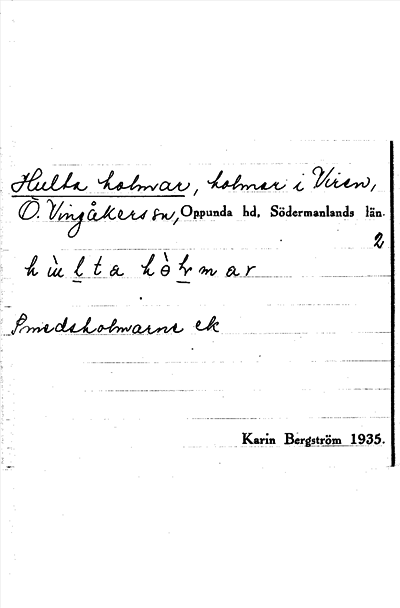 Hulta holmar, holmar i Viren,
Ö. Vingåkers sn, Oppunda hd, Södermanlands län.
2
hùl̲ta hòl̲mar
Smedsholmarne ek
Karin Bergström 1935.